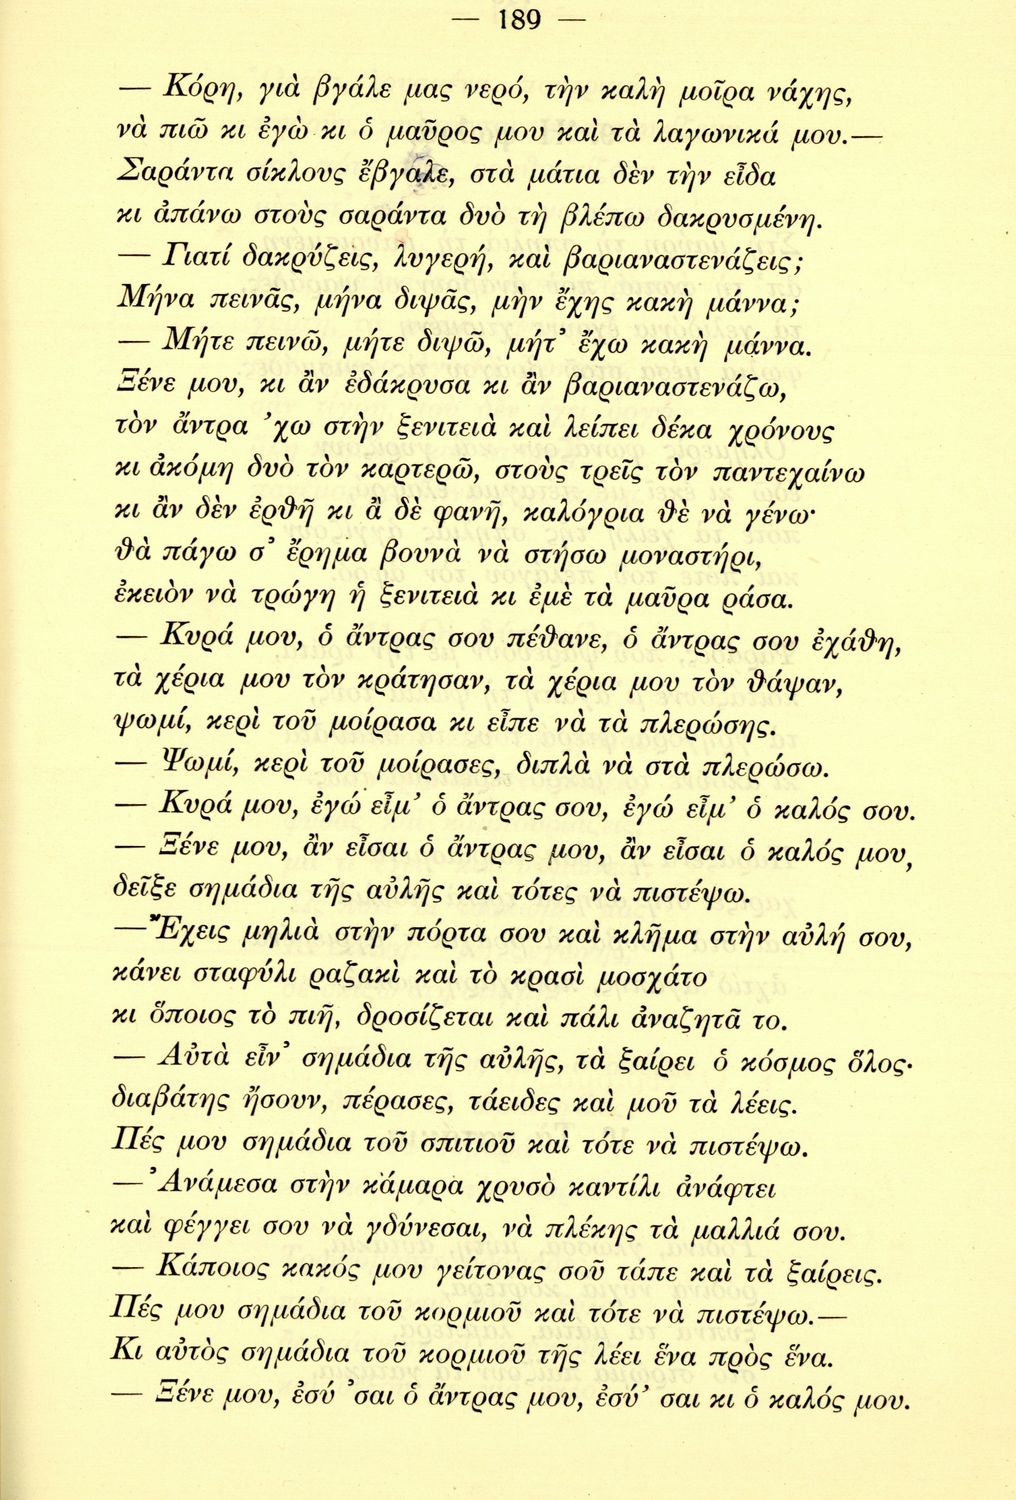 — 189 —
— Κόρη, γιὰ βγάλε μας νερό, τὴν καλὴ μοῖρα νάχης,
νὰ πιῶ κι ἐγὼ κι ὁ μαῦρος μου καὶ τὰ λαγωνικά μου.—
Σαράντα σίκλους ἔβγαλε, στὰ μάτια δὲν τὴν εἶδα
κι ἀπάνω στοὺς σαράντα δυὸ τὴ βλέπω δακρυσμένη.
— Γιατί δακρύζεις, λυγερή, καὶ βαριαναστενάζεις;
Μήνα πεινᾶς, μήνα διψᾶς, μὴν ἔχης κακὴ μάννα;
— Μήτε πεινῶ, μήτε διψῶ, μήτ᾽ ἔχω κακὴ μάννα.
Ξένε μου, κι ἂν ἐδάκρυσα κι ἂν βαριαναστενάζω,
τὸν ἄντρα ᾽χω στὴν ξενιτειὰ καὶ λείπει δέκα χρόνους
κι ἀκόμη δυὸ τὸν καρτερῶ, στοὺς τρεῖς τὸν παντεχαίνω
κι ἂν δὲν ἐρθῆ κι ἂ δὲ φανῆ, καλόγρια θὲ νὰ γένω·
θὰ πάγω σ᾽ ἔρημα βουνὰ νὰ στήσω μοναστήρι,
ἐκειὸν νὰ τρώγη ἡ ξενιτειὰ κι ἐμὲ τὰ μαῦρα ράσα.
— Κυρά μου, ὁ ἄντρας σου πέθανε, ὁ ἄντρας σου ἐχάθη,
τὰ χέρια μου τὸν κράτησαν, τὰ χέρια μου τὸν θάψαν,
ψωμί, κερὶ τοῦ μοίρασα κι εἶπε νὰ τὰ πλερώσης.
— Ψωμί, κερὶ τοῦ μοίρασες, διπλὰ νὰ στὰ πλερώσω.
— Κυρά μου, ἐγώ εἶμ᾽ ὁ ἄντρας σου, ἐγώ εἶμ᾽ ὁ καλός σου.
— Ξένε μου, ἂν εἶσαι ὁ ἄντρας μου, ἂν εἶσαι ὁ καλός μου,
δεῖξε σημάδια τῆς αὐλῆς καὶ τότες νὰ πιστέψω.
— Ἔχεις μηλιὰ στὴν πόρτα σου καὶ κλῆμα στὴν αὐλή σου,
κάνει σταφύλι ραζακὶ καὶ τὸ κρασὶ μοσχάτο
κι ὅποιος τὸ πιῆ, δροσίζεται καὶ πάλι ἀναζητᾶ το.
— Αὐτὰ εἶν᾽ σημάδια τῆς αὐλῆς, τὰ ξαίρει ὁ κόσμος ὅλος·
διαβάτης ἤσουν, πέρασες, τάειδες καὶ μοῦ τὰ λέεις.
Πές μου σημάδια τοῦ σπιτιοῦ καὶ τότε νὰ πιστέψω.
— Ἀνάμεσα στὴν κάμαρα χρυσὸ καντίλι ἀνάφτει
καὶ φέγγει σου νὰ γδύνεσαι, νὰ πλέκης τὰ μαλλιά σου.
— Κάποιος κακός μου γείτονας σοῦ τάπε καὶ τὰ ξαίρεις.
Πές μου σημάδια τοῦ κορμιοῦ καὶ τότε νὰ πιστέψω.—
Κι αὐτὸς σημάδια τοῦ κορμιοῦ τῆς λέει ἕνα πρὸς ἕνα.
— Ξένε μου, ἐσύ ᾽σαι ὁ ἄντρας μου, ἐσύ᾽ σαι κι ὁ καλός μου.